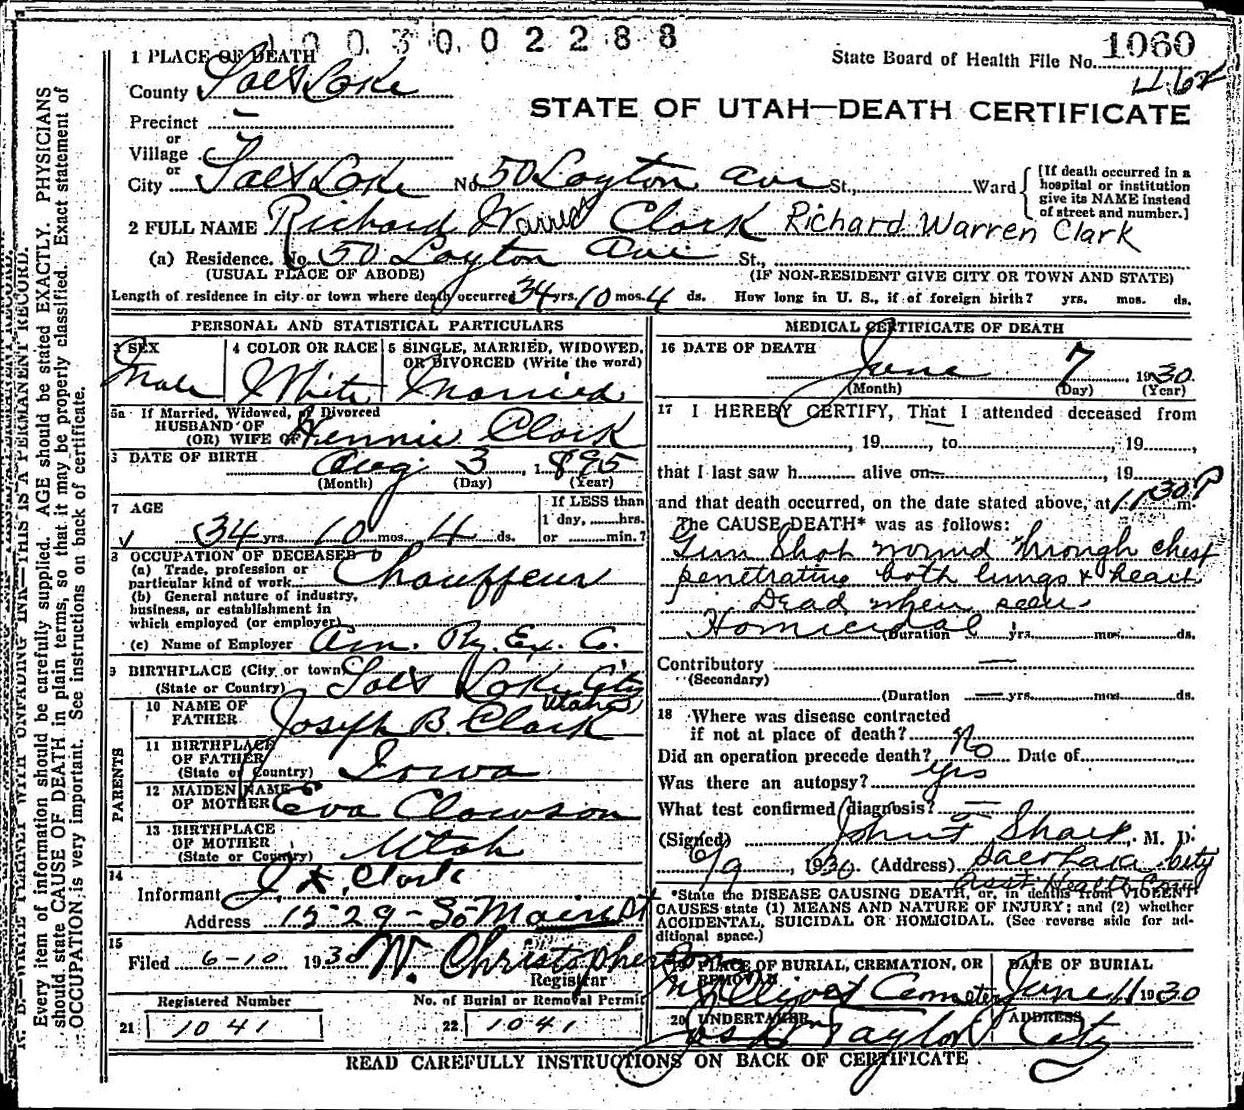 1003002288
State Board of Health File No. 1060
462
STATE OF UTAH—DEATH CERTIFICATE
1 PLACE OF DEATH
County Salt Lake
Precinct —
or
Village
or
City Salt Lake No. 50 Layton Ave St., Ward
[If death occurred in a
hospital or institution
give its NAME instead
of street and number.]
2 FULL NAME Richard Warren Clark Richard Warren Clark
(a) Residence. No. 50 Layton Ave St.,
(USUAL PLACE OF ABODE) (IF NON-RESIDENT GIVE CITY OR TOWN AND STATE)
Length of residence in city or town where death occurred 34 yrs. 10 mos. 4 ds. How long in U. S., if of foreign birth? yrs. mos. ds.
PERSONAL AND STATISTICAL PARTICULARS
3 SEX 4 COLOR OR RACE 5 SINGLE, MARRIED, WIDOWED,
OR DIVORCED (Write the word)
Male White Married
5a If Married, Widowed, or Divorced
HUSBAND OF
(OR) WIFE OF Clark
6 DATE OF BIRTH Aug 3, 1895
(Month) (Day) (Year)
7 AGE
34 yrs. 10 mos. 4 ds.
If LESS than
1 day, hrs.
or min.?
8 OCCUPATION OF DECEASED
(a) Trade, profession or
particular kind of work Chauffeur
(b) General nature of industry,
business, or establishment in
which employed (or employer)
(c) Name of Employer Am. Ry. Ex. Co.
9 BIRTHPLACE (City or town)
(State or Country) Salt Lake City
Utah
10 NAME OF
FATHER Joseph B. Clark
PARENTS
11 BIRTHPLACE
OF FATHER
(State or Country) Iowa
12 MAIDEN NAME
OF MOTHER Eva Clawson
13 BIRTHPLACE
OF MOTHER
(State or Country) Utah
14
Informant Clark
Address 1529 - So Main St
15
Filed 6-10 1930 W. Christopherson
Registrar
Registered Number No. of Burial or Removal Permit
21 1041 22 1041
MEDICAL CERTIFICATE OF DEATH
16 DATE OF DEATH
June 7, 1930
(Month) (Day) (Year)
17 I HEREBY CERTIFY, That I attended deceased from
, 19 , to , 19 ,
that I last saw h alive on— , 19
and that death occurred, on the date stated above, at 11 30 P m.
The CAUSE DEATH* was as follows:
Gun Shot wound through chest
penetrating both lungs & heart
Dead when seen.
Homicidal (Duration yrs. mos. ds.
Contributory —
(Secondary)
(Duration — yrs. mos. ds.
18 Where was disease contracted
if not at place of death?
Did an operation precede death? No Date of
Was there an autopsy? Yes
What test confirmed diagnosis? —
(Signed) John F Sharp, M. D.
6/9, 1930 (Address) Salt Lake City
*State the DISEASE CAUSING DEATH, or, in deaths from VIOLENT
CAUSES state (1) MEANS AND NATURE OF INJURY; and (2) whether
ACCIDENTAL, SUICIDAL OR HOMICIDAL. (See reverse side for ad-
ditional space.)
19 PLACE OF BURIAL, CREMATION, OR
REMOVAL DATE OF BURIAL
Mt Olivet Cemetery June 11 1930
20 UNDERTAKER ADDRESS
Taylor City
READ CAREFULLY INSTRUCTIONS ON BACK OF CERTIFICATE
N. B.—WRITE PLAINLY WITH UNFADING INK—THIS IS A PERMANENT RECORD.
Every item of information should be carefully supplied. AGE should be stated EXACTLY. PHYSICIANS
should state CAUSE OF DEATH in plain terms, so that it may be properly classified. Exact statement of
OCCUPATION is very important. See instructions on back of certificate.